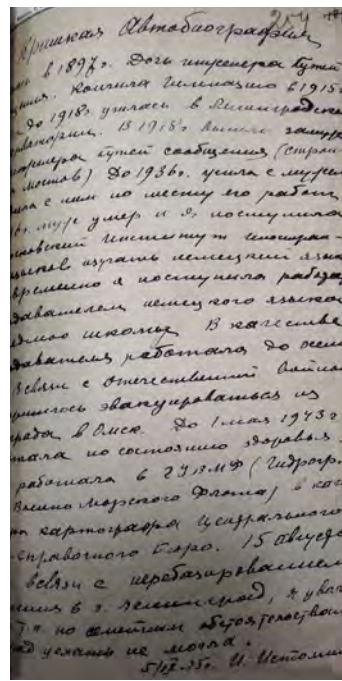 254
Краткая Автобиография
в 1897г. Дочь инженера Путей
Кончила Гимназию в 1915г
До 1918г училась в Ленинградской
В 1918г вышла замуж
инженера путей сообщения (строи-
мостов) До 1936г. жила с мужем
с ним по месту его работы
муж умер и я поступила
Институт иностран-
изучать немецкий язык
временно я поступила работать
давателем немецкого языка
школы. В качестве
давателя работала до
В связи с отечественной войной
пришлось эвакуироваться из
града в Омск. До 1 мая 1943г
по состоянию здоровья
работала в ГУВМФ (Гидрогр.
Военно Морского Флота) в кач
картографа Центрального
Справочного Бюро. 15 августа
в связи с перебазированием
в г. Ленинград, я
т.к. по семейным обстоятельствам
уехать не могла.
И. Истомин